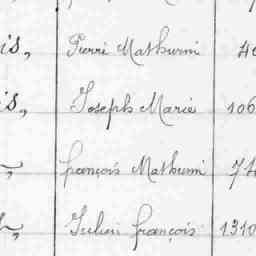 is, Pierre Mathurin 40
is, Joseph Marie 106
François Mathurin 74
Julien François 1310